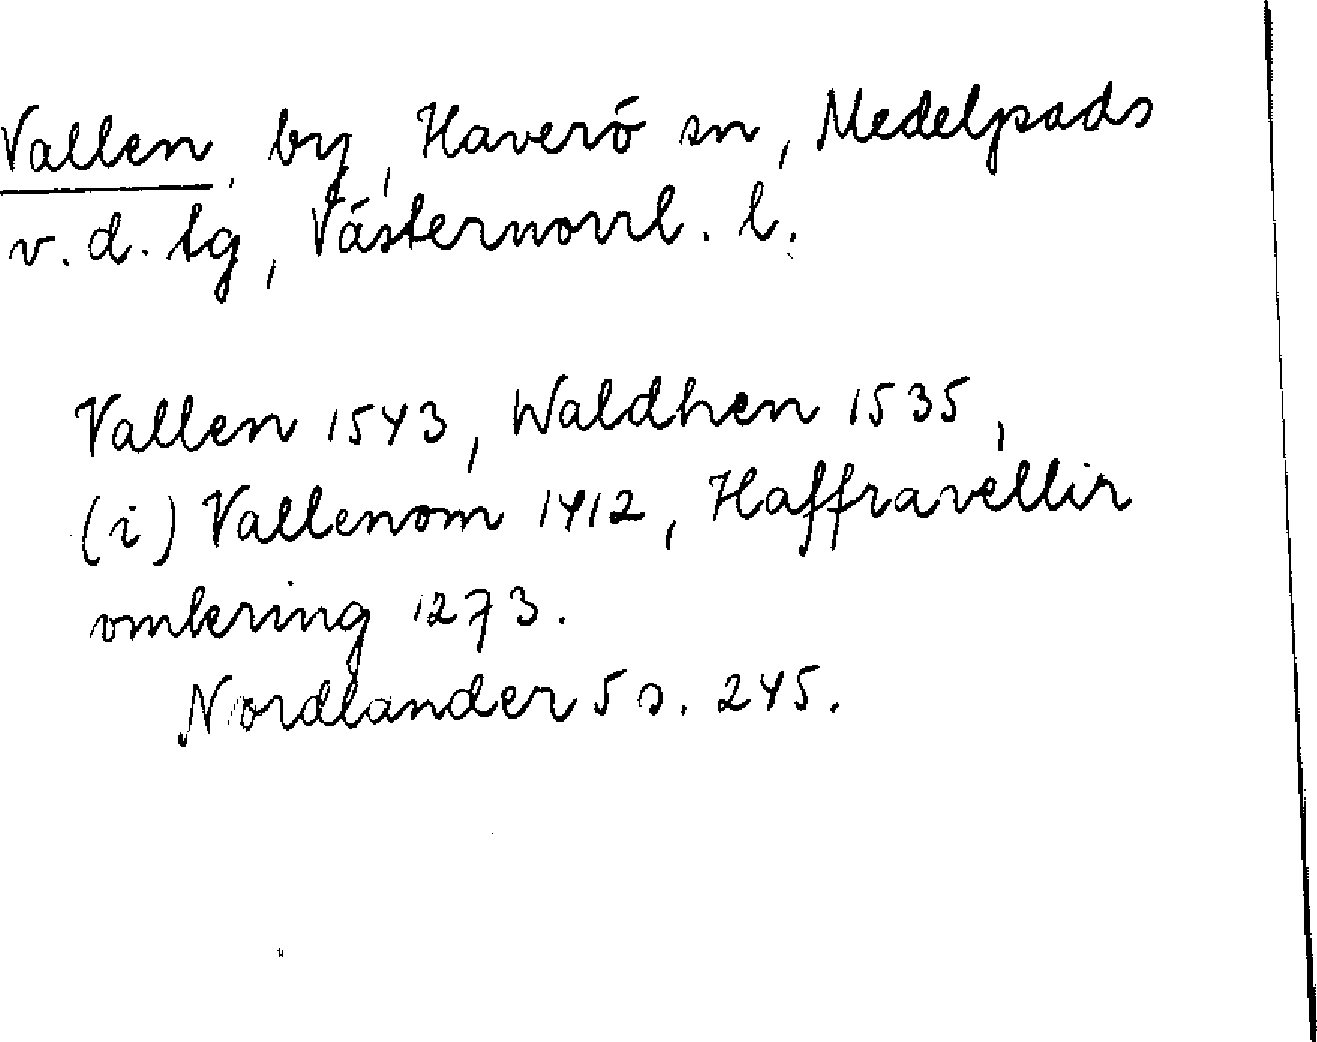 Vallen, by, Haverö sn, Medelpads
v. d. tg, Västernorrl. l.
Vallen 1543, Waldhen 1535,
(i) Vallenom 1412, Haffravellir
omkring 1273.
Nordlander 5 s. 245.